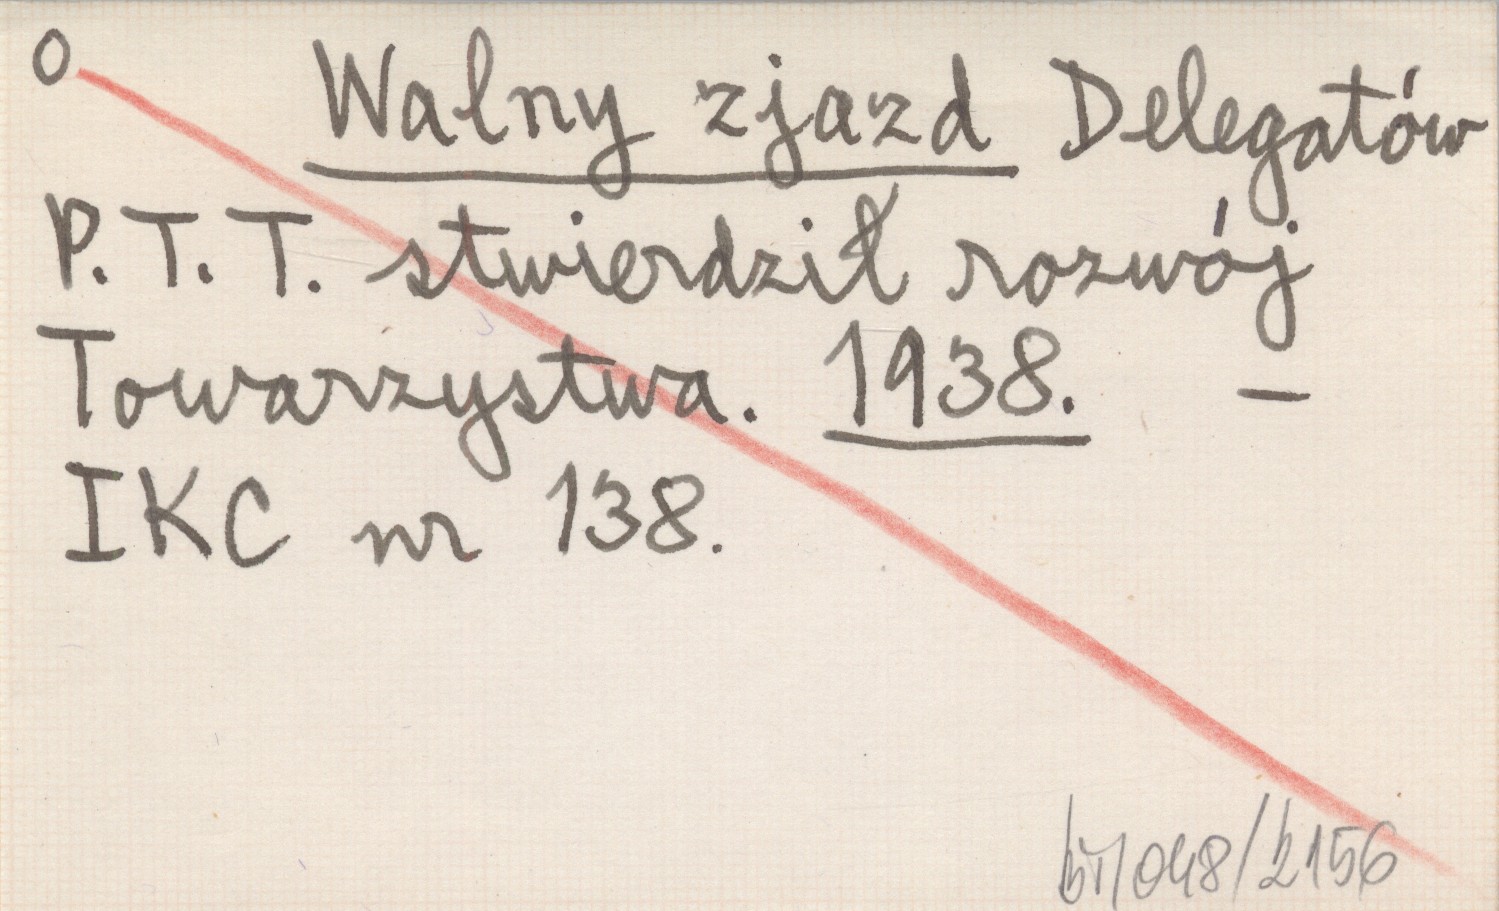 O Walny zjazd Delegatów
P.T.T. stwierdził rozwój
Towarzystwa. 1938. —
IKC nr 138.
/048/2156